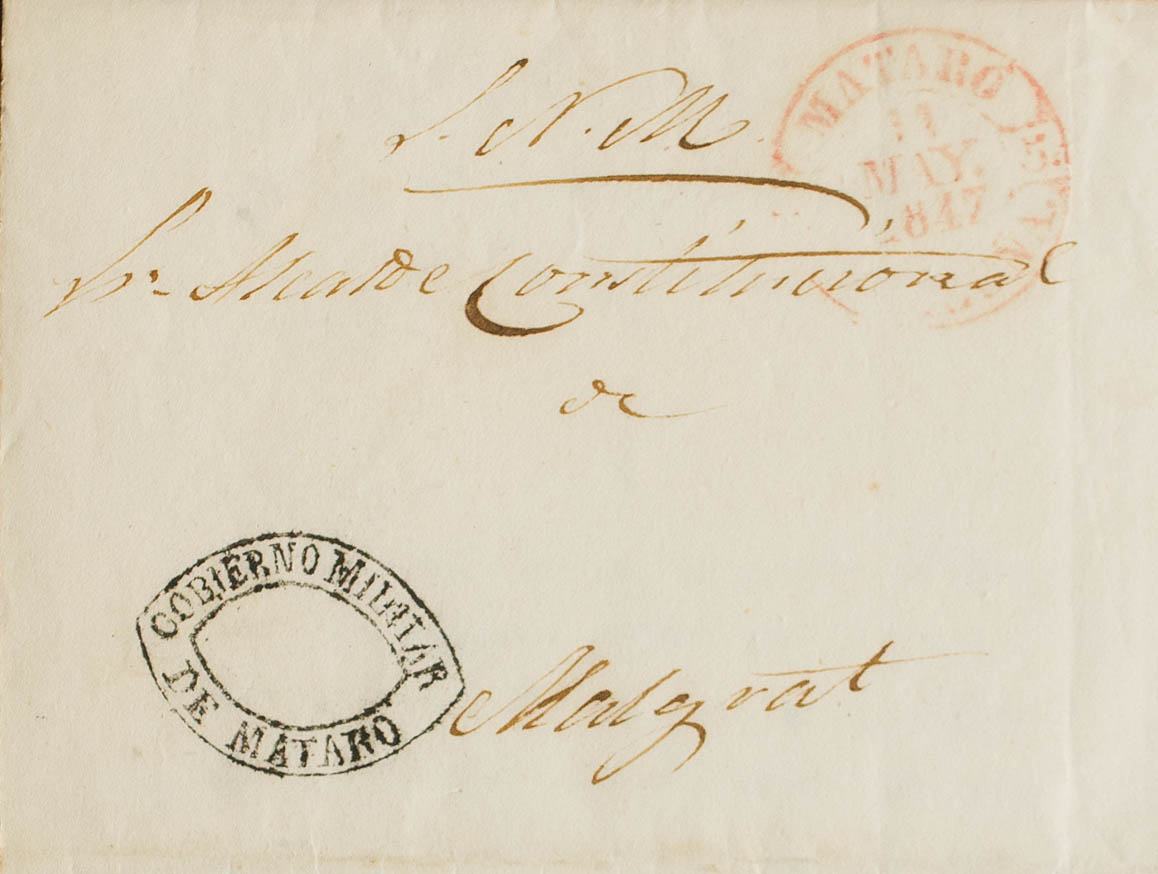 S. N. M.
MATARÓ
11
MAY.
1847
Sr. Alcalde Constitucional
de
GOBIERNO MILITAR
DE MATARO
Malgrat